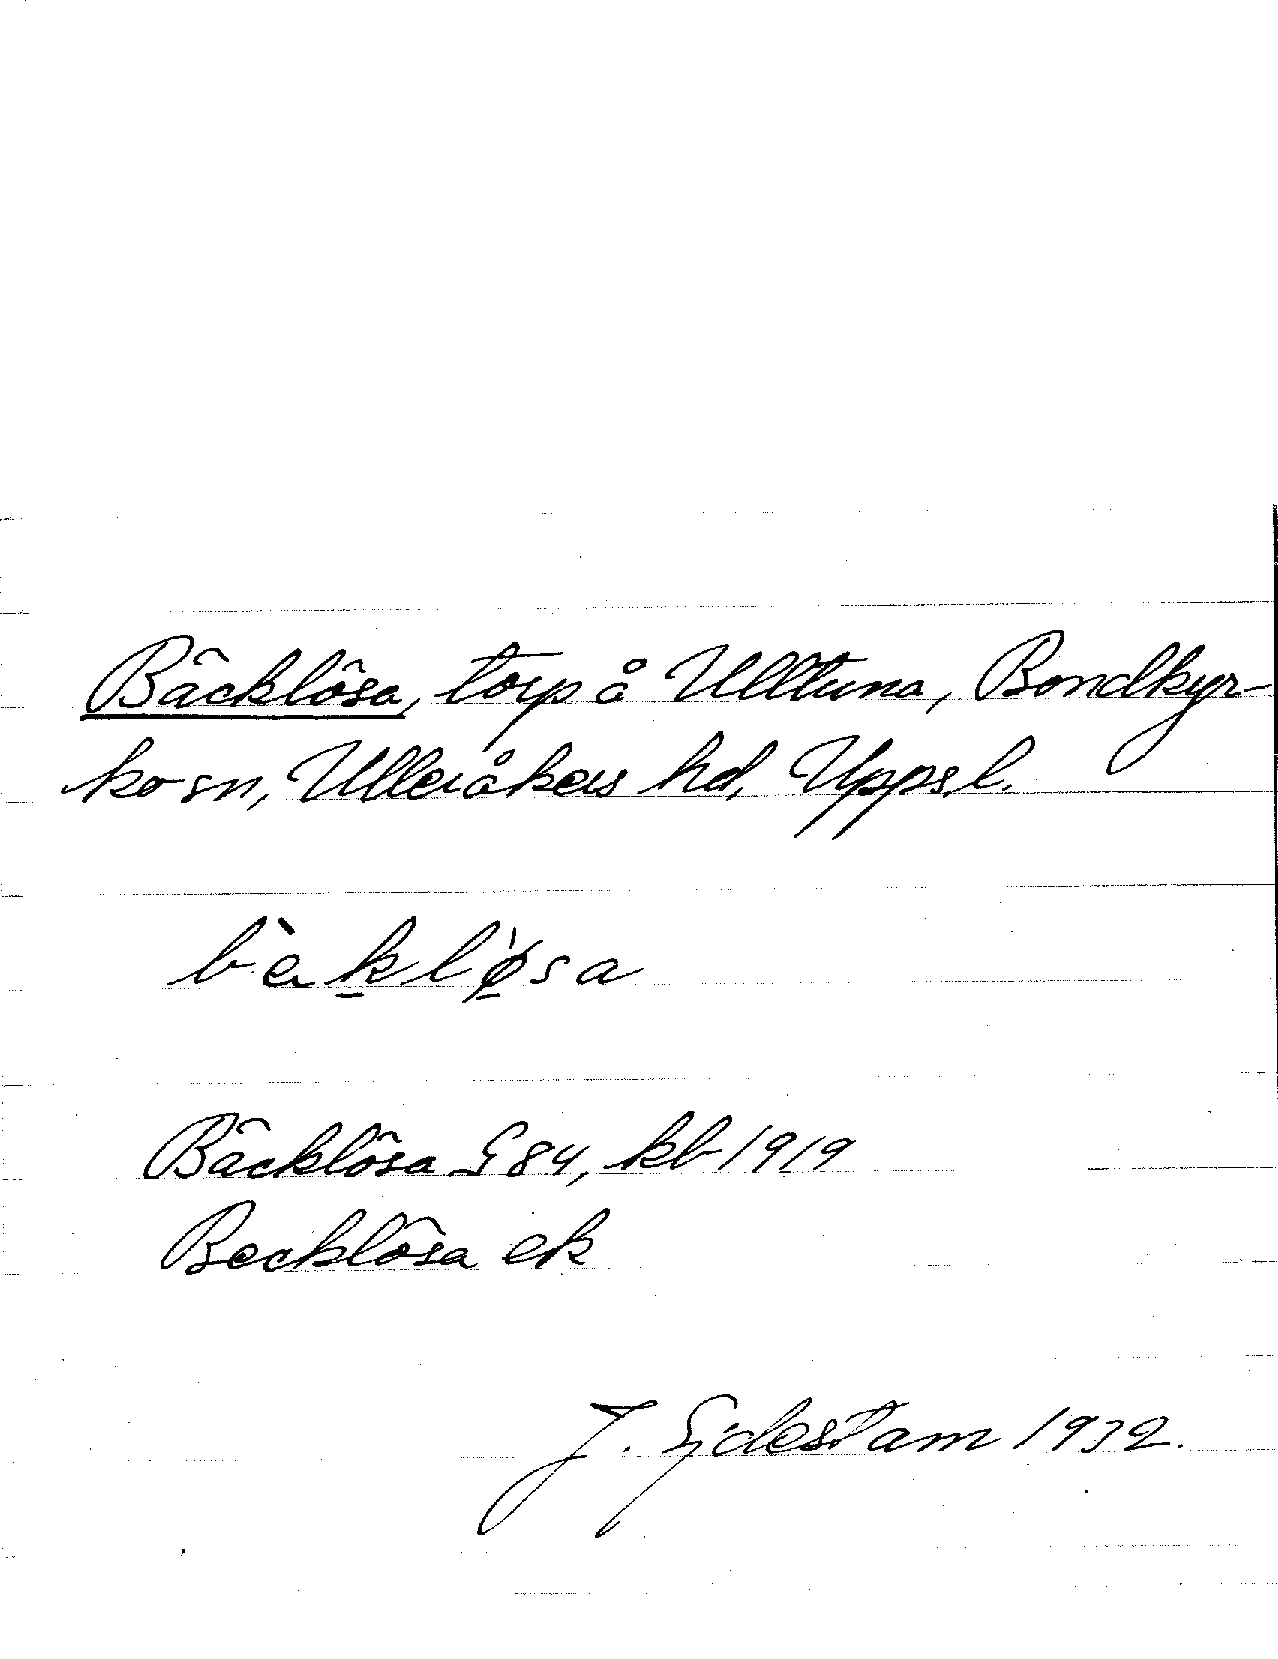 Bäcklösa, torp å Ulltuna, Bondkyr-
ko sn, Ulleråkers hd, Uppsl.
bàklǿsa
Bäcklösa G 84, kb 1919
Becklösa ek
J. Gidestam 1932.